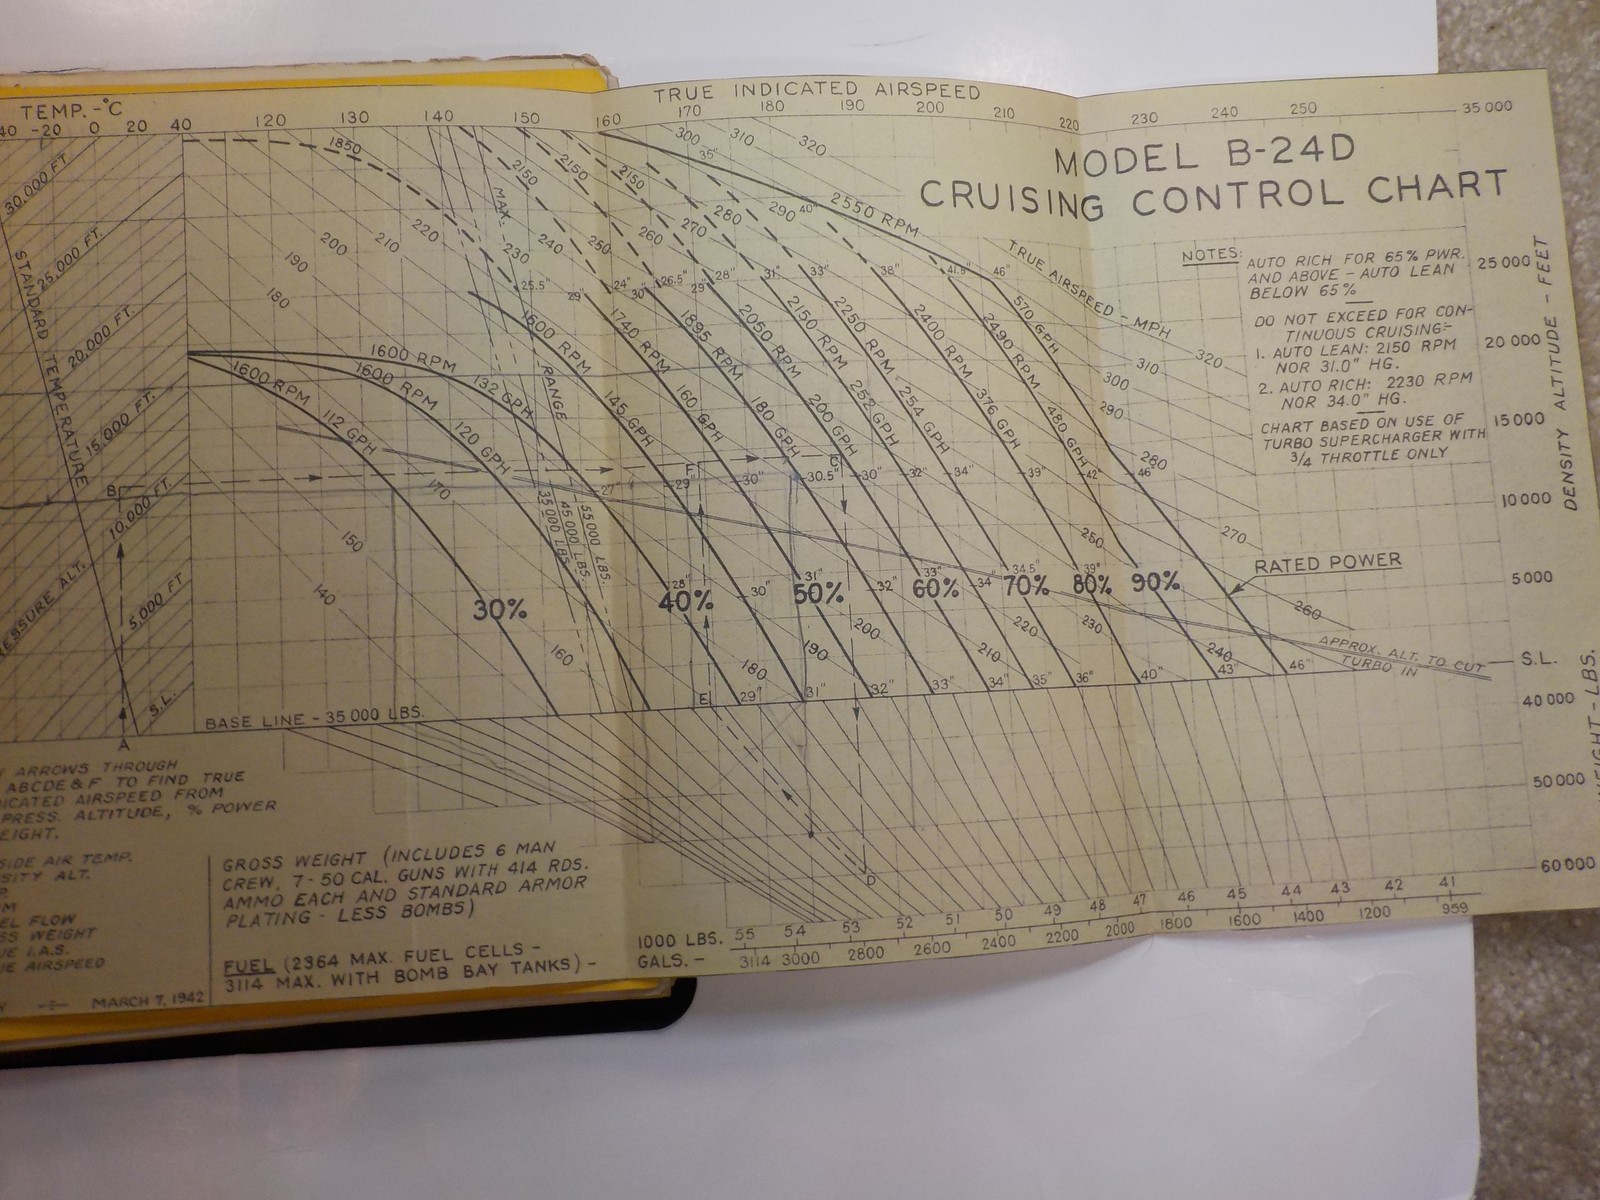 TEMP. -°C
40 -20 0 20 40
TRUE INDICATED AIRSPEED
120 130 140 150 160 170 180 190 200 210 220 230 240 250
35 000
MODEL B-24D
CRUISING CONTROL CHART
NOTES:
AUTO RICH FOR 65% PWR.
AND ABOVE - AUTO LEAN
BELOW 65%
DO NOT EXCEED FOR CON-
TINUOUS CRUISING:-
1. AUTO LEAN: 2150 RPM
NOR 31.0" HG.
2. AUTO RICH: 2230 RPM
NOR 34.0" HG.
CHART BASED ON USE OF
TURBO SUPERCHARGER WITH
3/4 THROTTLE ONLY
25 000
20 000
15 000
10 000
5 000
S.L.
DENSITY ALTITUDE - FEET
40 000
50 000
60 000
WEIGHT - LBS.
30,000 FT.
25,000 FT.
20,000 FT.
15,000 FT.
10,000 FT.
5,000 FT
S.L.
STANDARD TEMPERATURE
ESSURE ALT.
A
B
C
D
E
F
1850
2150
2150
2150
2550 RPM
MAX. RANGE
35 000 LBS.
45 000 LBS.
55 000 LBS.
TRUE AIRSPEED - MPH
300 310 320
35"
40"
140 150 160 170 180 190 200 210 220 230 240 250 260 270 280 290
320 310 300 290 280 270 260
180 190 200 210 220 230 240 250
25.5" 29" 24" 30" 26.5" 29" 28" 31" 33" 38" 41.5" 46"
1600 RPM 112 GPH
1600 RPM 120 GPH
1600 RPM 132 GPH
1600 RPM 145 GPH
1740 RPM 160 GPH
1895 RPM 180 GPH
2050 RPM 200 GPH
2150 RPM 252 GPH
2250 RPM 254 GPH
2400 RPM 376 GPH
2490 RPM 480 GPH
570 GPH
27" 29" 30" 30.5" 30" 32" 34" 39" 42" 46"
28" 30" 31" 32" 33" 34" 34.5" 39"
30% 40% 50% 60% 70% 80% 90%
RATED POWER
APPROX. ALT. TO CUT
TURBO IN
29" 31" 32" 33" 34" 35" 36" 40" 43" 46"
BASE LINE - 35 000 LBS.
ARROWS THROUGH
ABCDE & F TO FIND TRUE
DICATED AIRSPEED FROM
PRESS. ALTITUDE, % POWER
EIGHT.
SIDE AIR TEMP.
SITY ALT.
P.
M
EL FLOW
SS WEIGHT
UE I.A.S.
UE AIRSPEED
Y MARCH 7, 1942
GROSS WEIGHT (INCLUDES 6 MAN
CREW, 7-50 CAL. GUNS WITH 414 RDS.
AMMO EACH AND STANDARD ARMOR
PLATING - LESS BOMBS)
FUEL (2364 MAX. FUEL CELLS -
3114 MAX. WITH BOMB BAY TANKS) -
1000 LBS. 55 54 53 52 51 50 49 48 47 46 45 44 43 42 41
GALS. - 3114 3000 2800 2600 2400 2200 2000 1800 1600 1400 1200 959